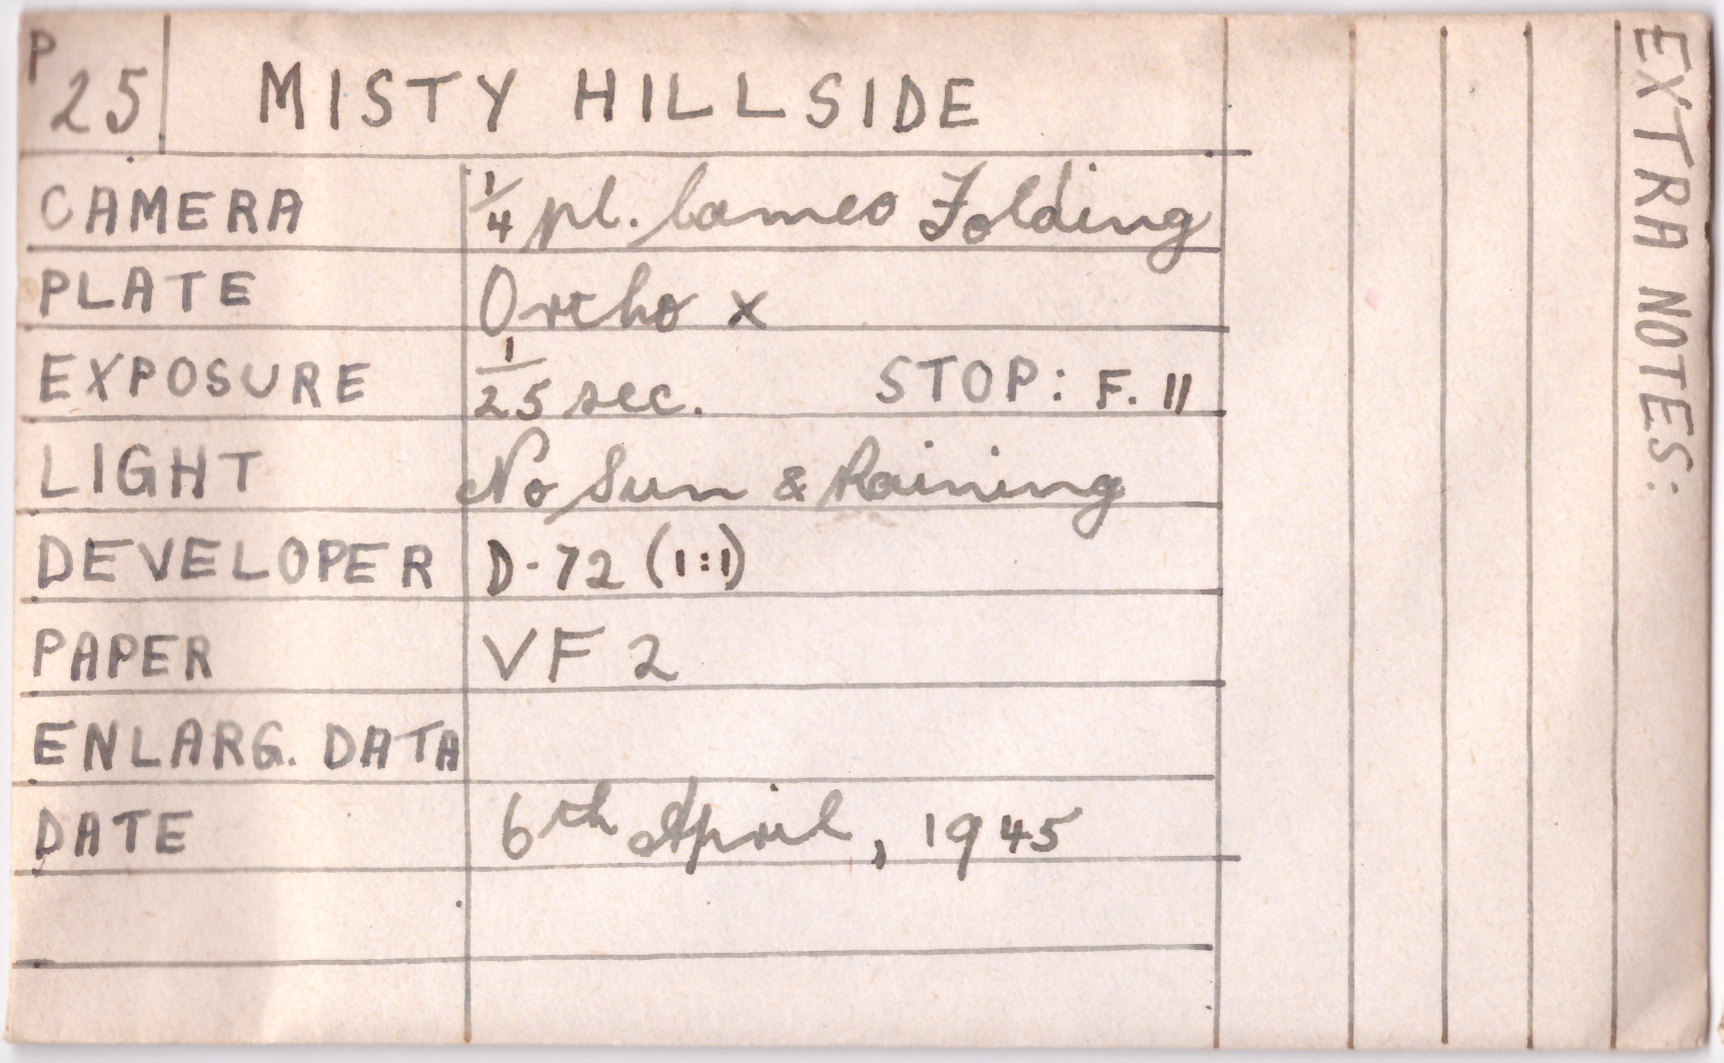 P
25 MISTY HILLSIDE
CAMERA 1/4 pl. Cameo Folding
PLATE Ortho x
EXPOSURE 1/25 sec. STOP: F. 11
LIGHT No Sun & Raining
DEVELOPER D-72 (1:1)
PAPER VF 2
ENLARG. DATA
DATE 6th April, 1945
EXTRA NOTES: